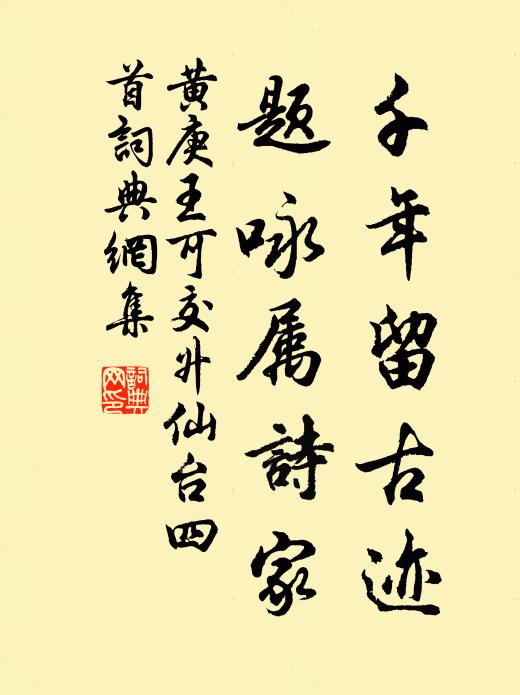 千年留古迹
題咏属詩家
黄庚王可交升仙台四
首詞典網集
詞典
网印